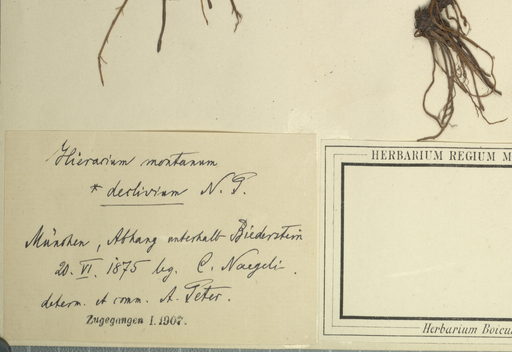 Hieracium montanum
* declivium N. P.
München, Abhang unterhalb Biederstein
20. VI. 1875 leg. C. Naegeli.
determ. et comm. A. Peter.
Zugegangen I. 1907.
HERBARIUM REGIUM M
Herbarium Boicu